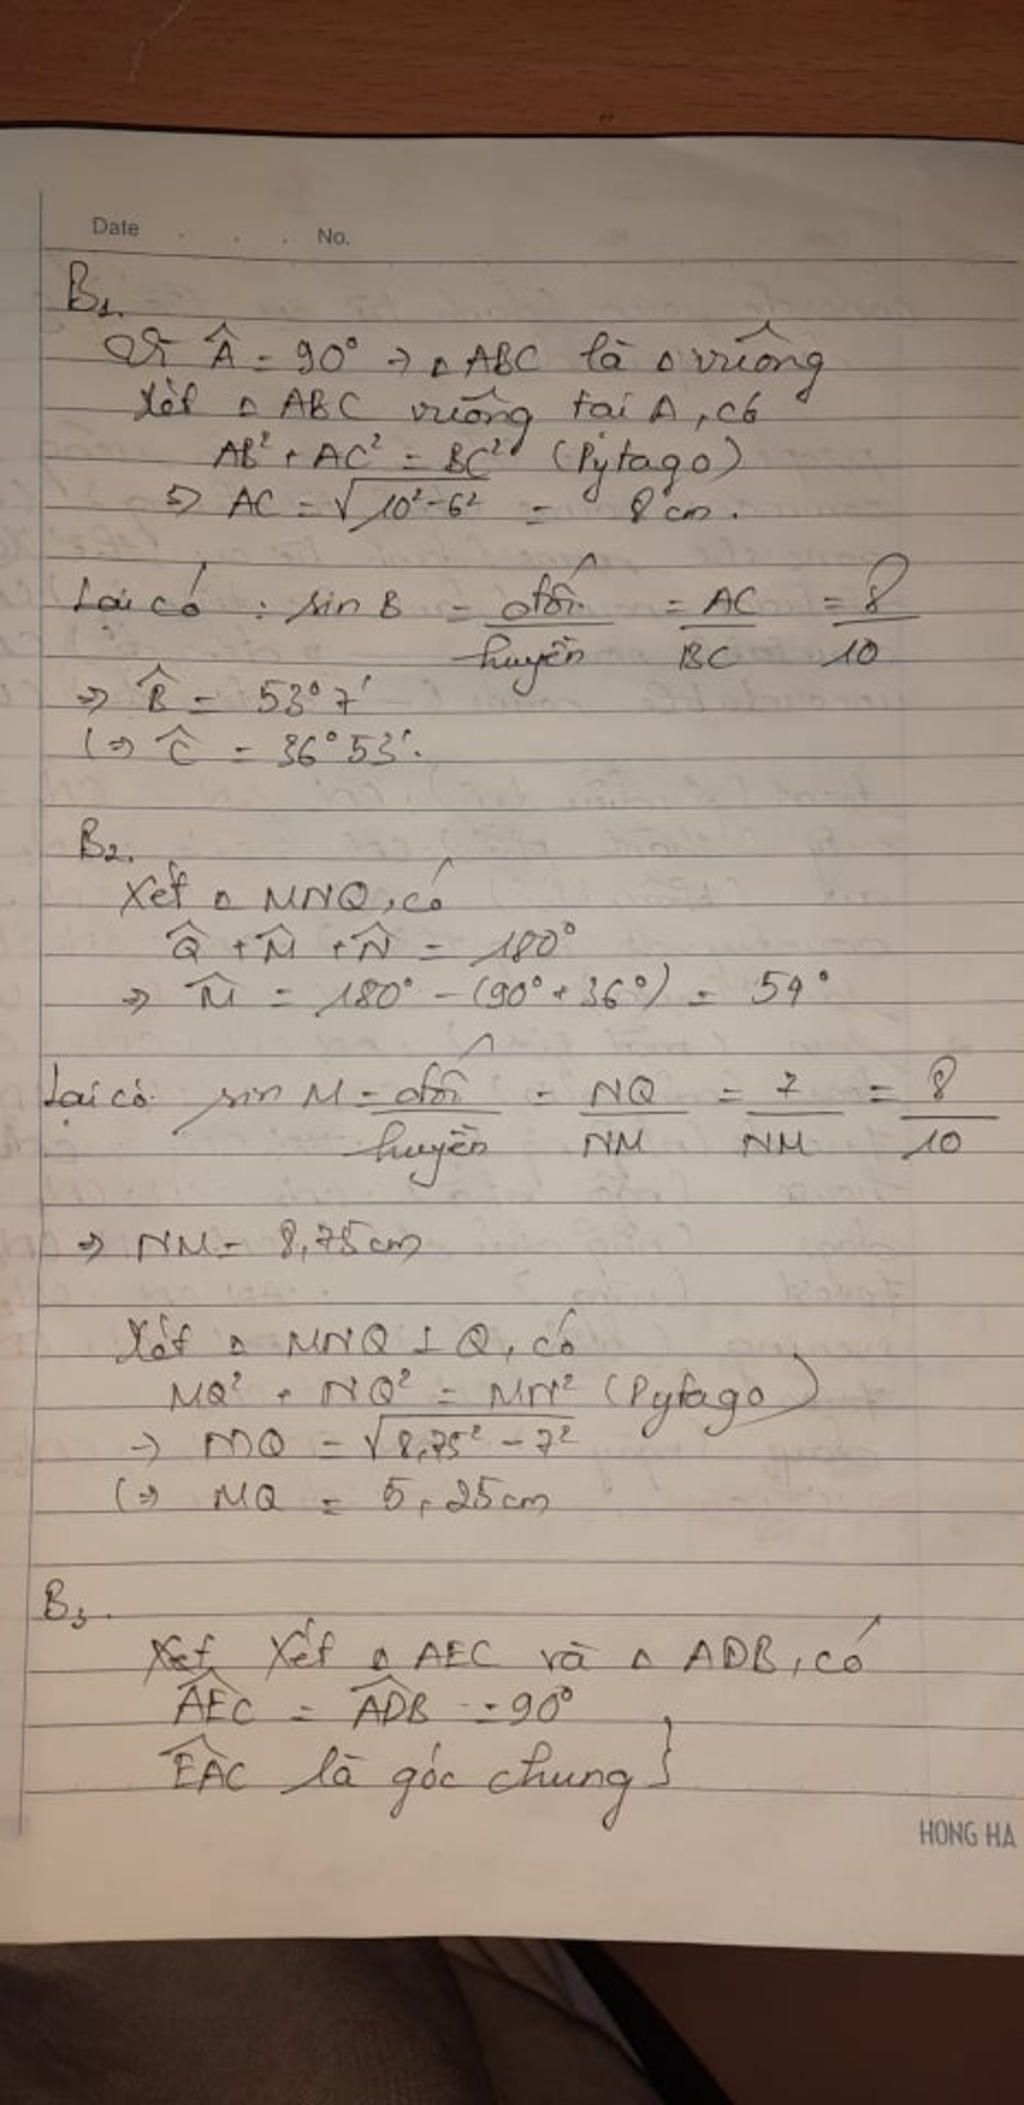 Date . . . No.
B1.
Vì Â = 90° → △ ABC là △ vuông
Xét △ ABC vuông tại A, có
AB² + AC² = BC² (Pytago)
=> AC = √10² - 6² = 8 cm.
Lại có : sin B = đối / huyền = AC / BC = 8 / 10
=> B̂ = 53°7'
(=> Ĉ = 36°53'.
B2.
Xét △ MNQ, có
Q̂ + M̂ + N̂ = 180°
=> M̂ = 180° - (90° + 36°) = 54°
Lại có sin M = đối / huyền = NQ / NM = 7 / NM = 8 / 10
=> NM = 8,75 cm
Xét △ MNQ ⊥ Q, có
MQ² + NQ² = MN² (Pytago)
→ MQ = √8,75² - 7²
(=> MQ = 5,25 cm
B3.
Xét Xét △ AEC và △ ADB, có
AEC = ADB = 90°
EAC là góc chung }
HONG HA